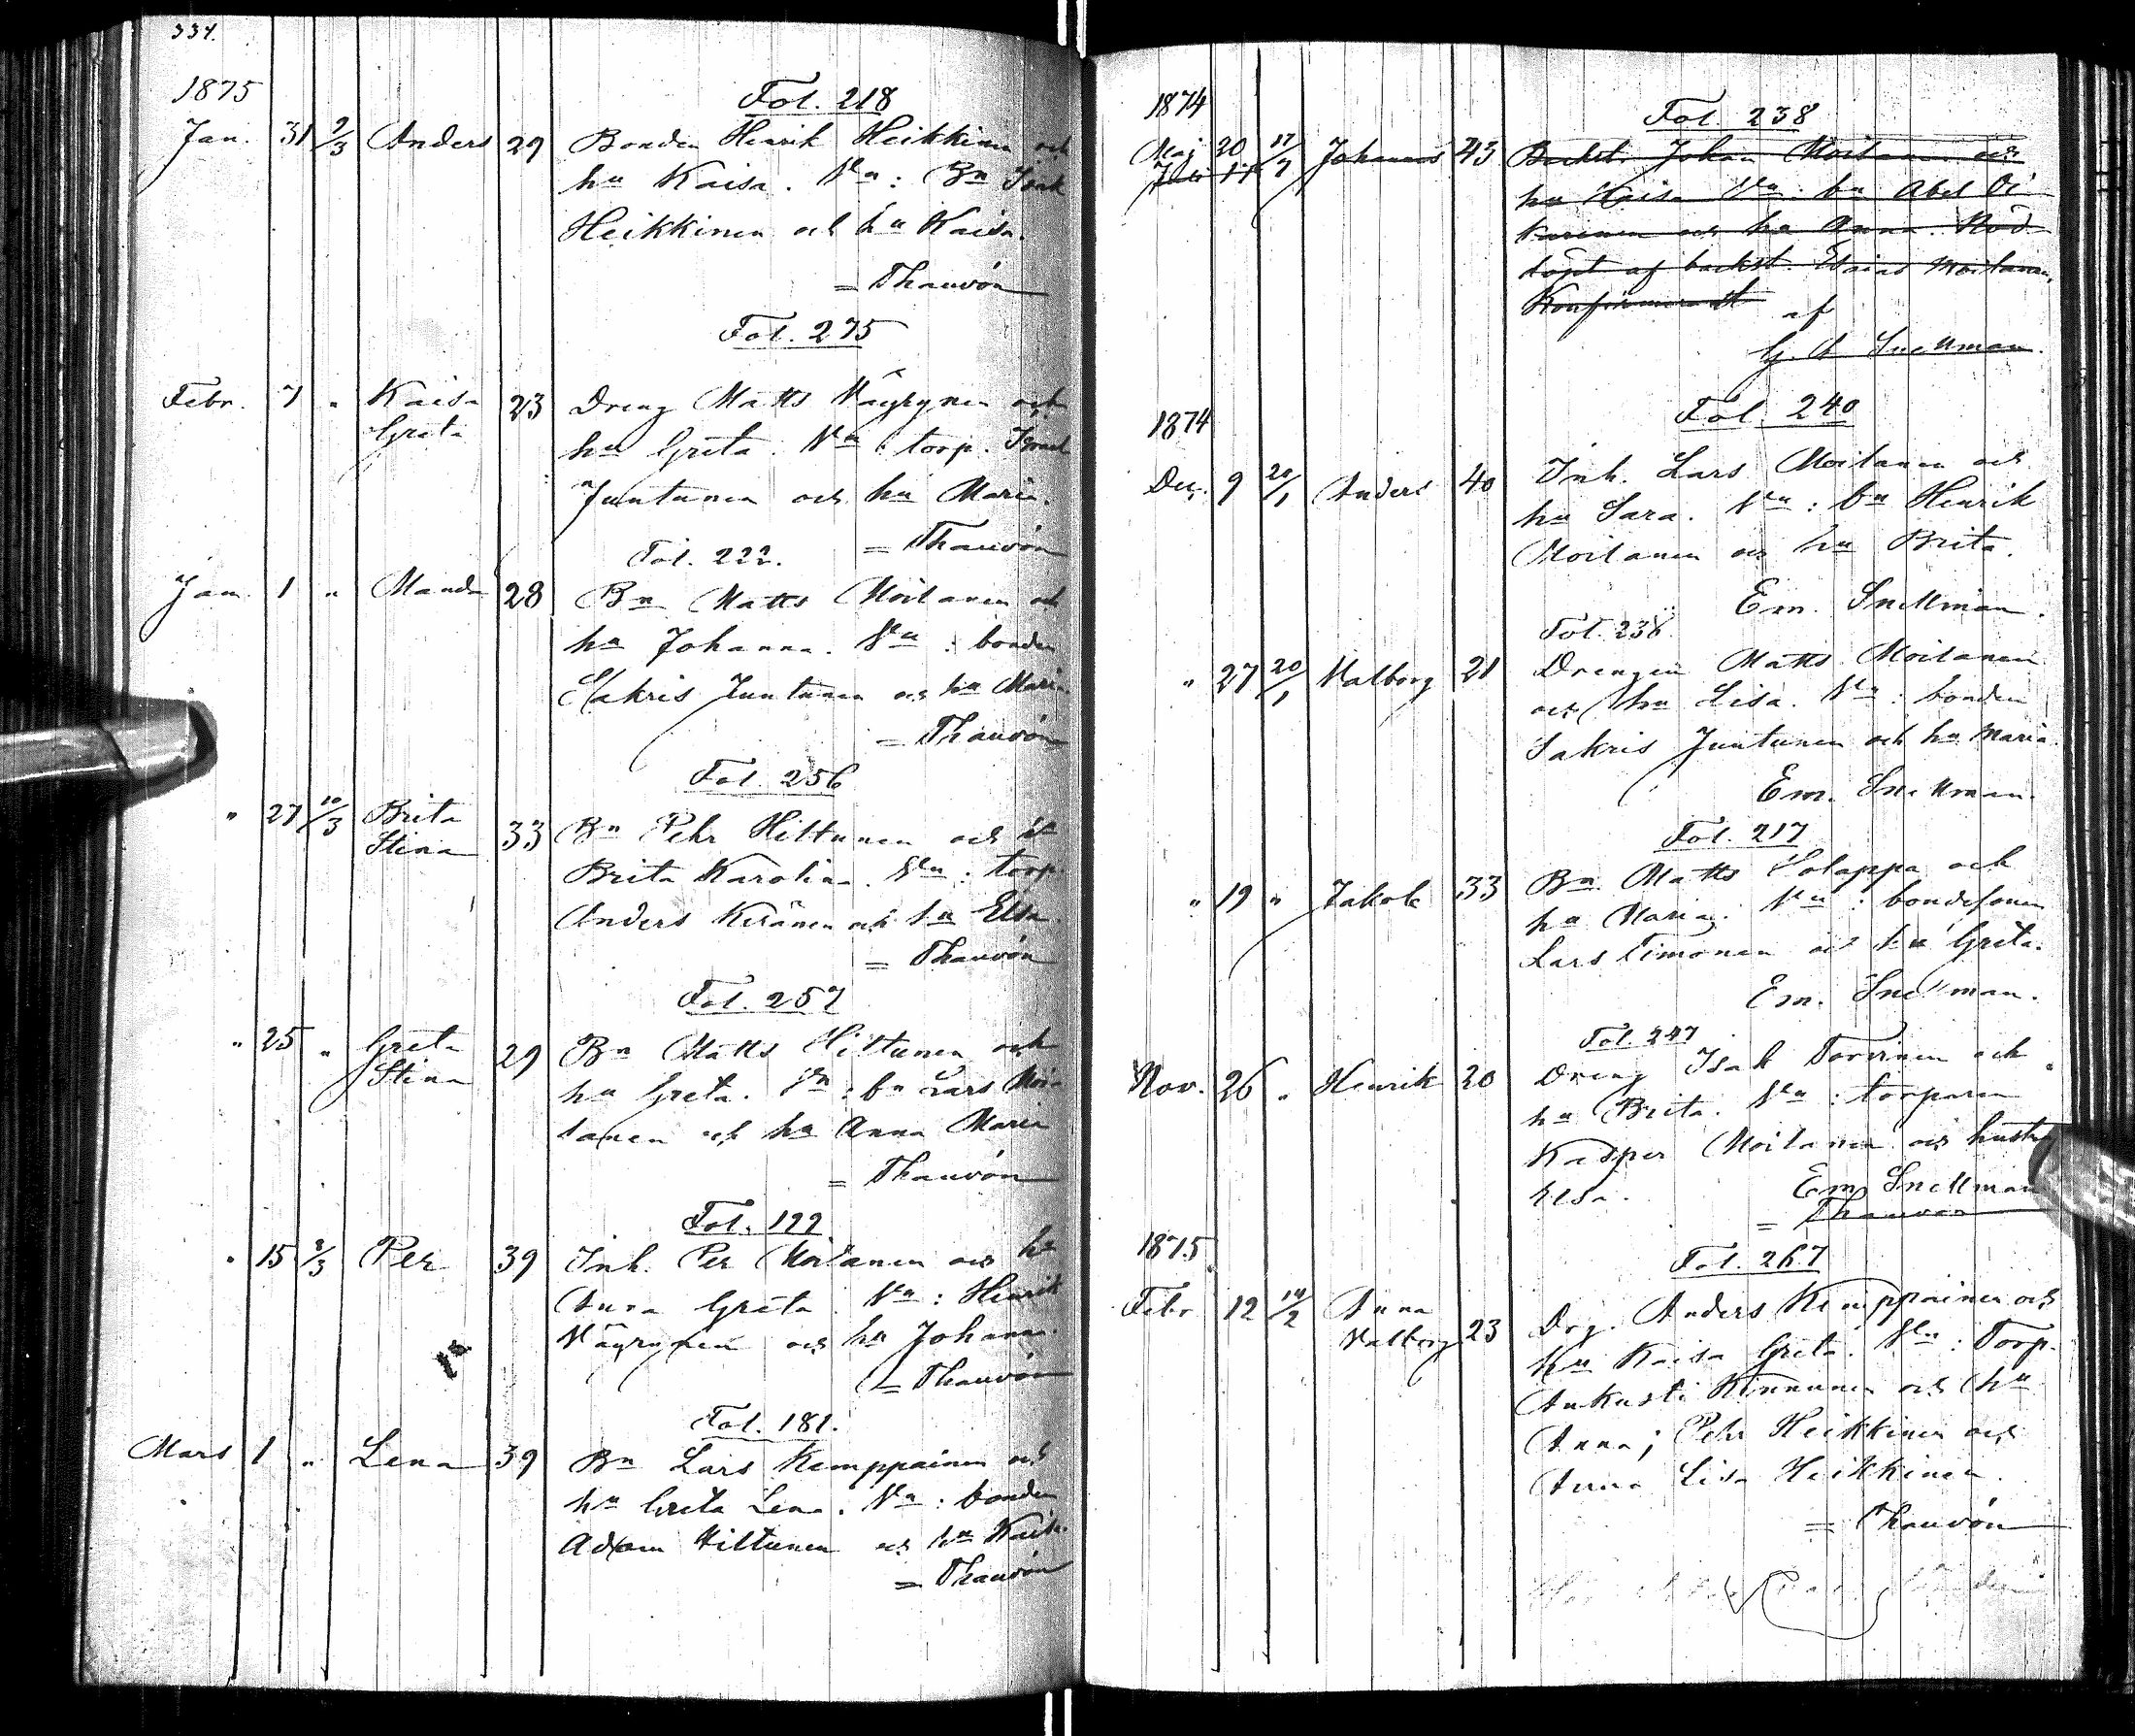 334.
1875
Fol. 218
Jan. 31 7/3 Anders 29 Bonden Henrik Heikkinen och
hu Kaisa. Vn: Bn Isak
Heikkinen och hu Kaisa.
= Thauvón
Fol. 275
Febr. 7 " Kaisa Greta 23 Dreng Matts Väyrynen och
hu Greta. Vn: torp. Israel
Juntunen och hu Maria.
= Thauvón
Fol. 222.
Jan. 1 " Manda 28 Bn Matts Moilanen och
hu Johanna. Vn: bonden
Sakris Juntunen och hu Maria
= Thauvón
Fol. 256
" 27 10/3 Brita Stina 33 Bn Pehr Hiltunen och
Brita Karolina. Vn: torp.
Anders Keränen och hu Elsa.
= Thauvón
Fol. 257
" 25 " Greta Stina 29 Bn Matts Hiltunen och
hu Greta. Vn: bn Lars Moi-
lanen och hu Anna Maria
= Thauvón
Fol. 199
" 15 9/3 Per 39 Inh. Per Moilanen och hu
Anna Greta. Vn: Henrik
Väyrynen och hu Johanna.
= Thauvón
Fol. 181.
Mars 1 " Lena 39 Bn Lars Kemppainen och
hu Greta Lena. Vn: bonden
Adam Hiltunen och hu Kaisa.
= Thauvón
1874
Fol. 238
Maj 20 17/7 Johannes 43 Backst. Johan Moilanen och
hu Kaisa Vn: bn Abel Oi
karinen och hu Anna. Nöd
döpt af backst. Esaias Moilanen,
Konfirmeradt af
G. A Snellman.
Fol. 240
1874
Dec. 9 20/1 Anders 40 Inh. Lars Moilanen och
hu Sara. Vn: bn Henrik
Moilanen och hu Brita.
Em. Snellman.
Fol. 238.
" 27 20/1 Valborg 21 Drengen Matts Moilanen
och hu Lisa. Vn: bonden
Sakris Juntunen och hu Maria.
Em. Snellman.
Fol. 217
" 19 " Jakob 33 Bn Matts Solappa och
hu Maria. Vn: bondesonen
Lars Timonen och hu Greta.
Em. Snellman.
Fol. 247
Nov. 26 " Henrik 20 Dreng Isak Torvinen och
hu Brita. Vn: torparen
Kasper Moilanen och hustru
Elsa. Em Snellman
= Thauvón
1875.
Fol. 267
Febr 12 14/2 Anna Valborg 23 Drg. Anders Kemppainen och
hu Kaisa Greta. Vn: Torp.
Aukusti Kinnunen och hu
Anna; Pehr Heikkinen och
Anna Lisa Heikkinen.
= Thauvón